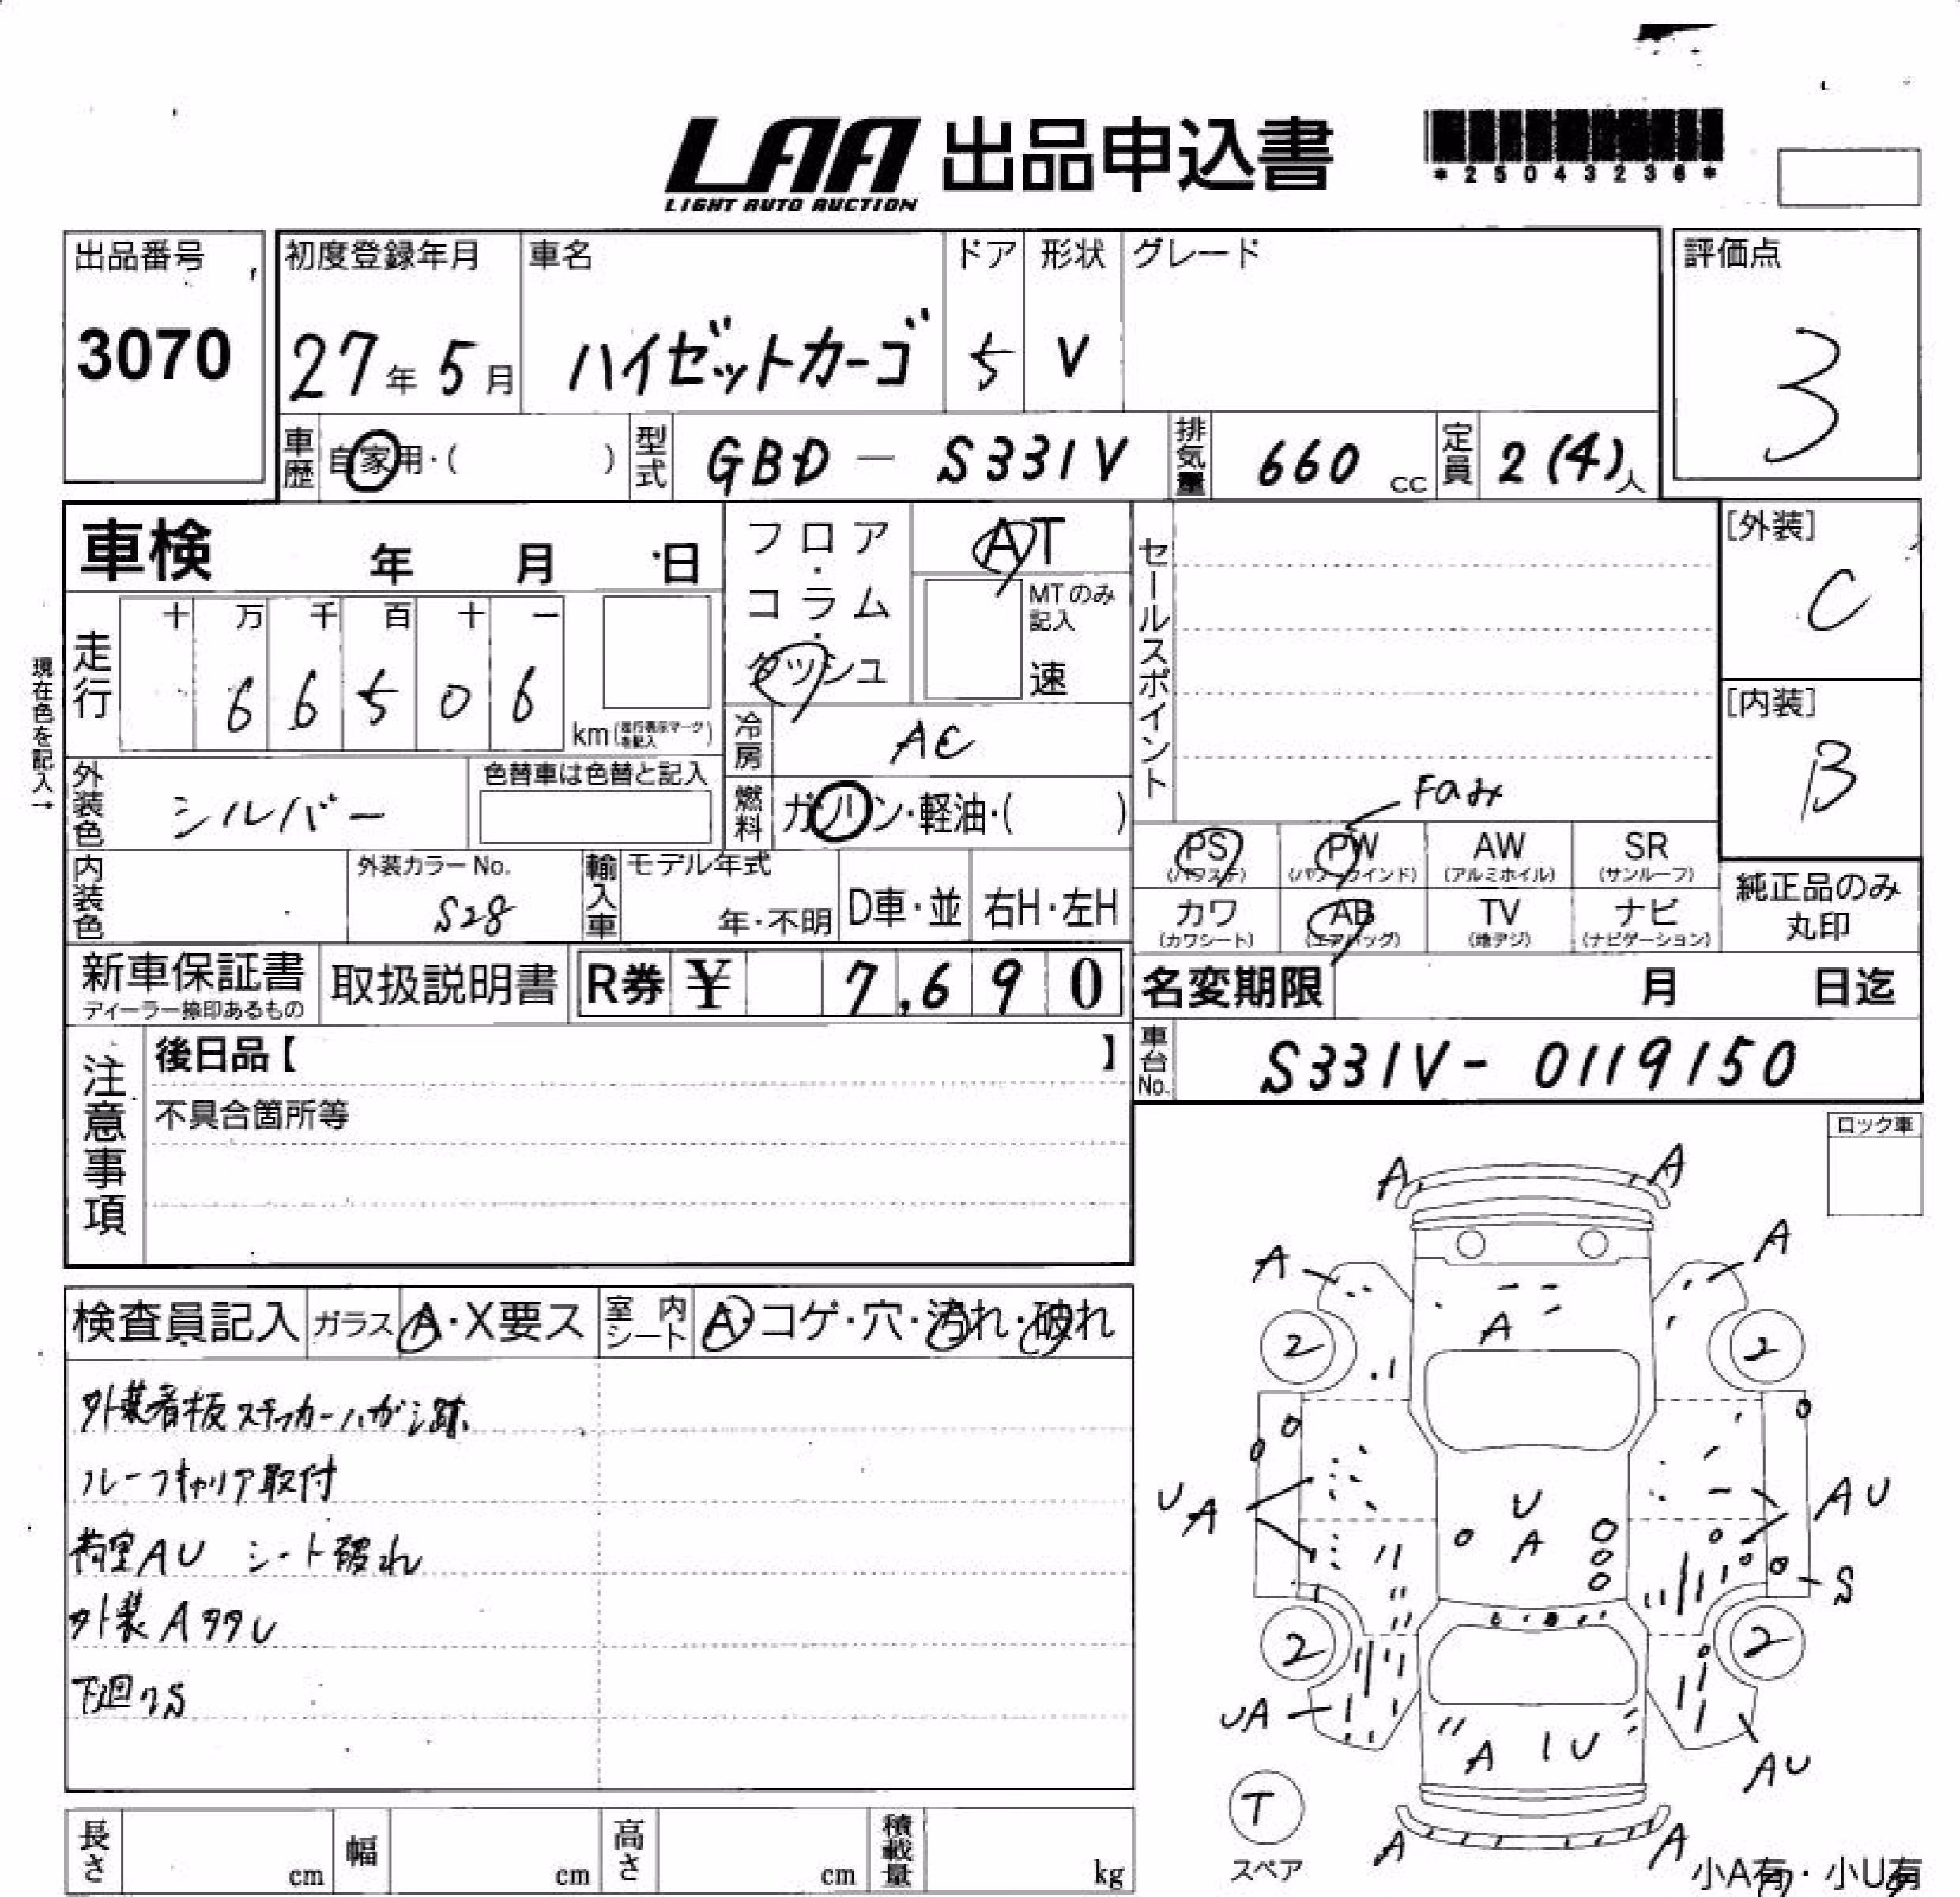 LAA 出品申込書
LIGHT AUTO AUCTION
*25043236*
出品番号
3070
初度登録年月
27年5月
車名
ハイゼットカーゴ
ドア
5
形状
V
グレード
評価点
3
車歴
自家用・( )
型式
GBD - S331V
排気量
660 cc
定員
2(4)人
車検 年 月 日
フロア・コラム・ダッシュ
AT
MTのみ記入
速
セールスポイント
[外装]
C
[内装]
B
現在色を記入→
走行
十 万 千 百 十 一
6 6 5 0 6
km(走行表示マークを記入)
冷房
AC
外装色
シルバー
色替車は色替と記入
燃料
ガソリン・軽油・( )
Fのみ
PS
(パワステ)
PW
(パワーウインド)
AW
(アルミホイル)
SR
(サンルーフ)
カワ
(カワシート)
AB
(エアバッグ)
TV
(地デジ)
ナビ
(ナビゲーション)
純正品のみ
丸印
内装色
外装カラーNo.
S28
輸入車
モデル年式
年・不明
D車・並
右H・左H
新車保証書
ディーラー捺印あるもの
取扱説明書
R券 ¥ 7,690
名変期限 月 日迄
注意事項
後日品【 】
不具合箇所等
車台No.
S331V- 0119150
ロック車
検査員記入
ガラス
A・X要ス
室内シート
A・コゲ・穴・汚れ・破れ
外装看板ステッカーハガシ跡
ルーフキャリア取付
荷室AU シート破れ
外装AタタU
下廻りS
A A
A A
A
2 2
U
A
UA
AU
S
2 2
UA
A 1U
AU
T
スペア
A A
小A有・小U有
長さ cm
幅 cm
高さ cm
積載量 kg